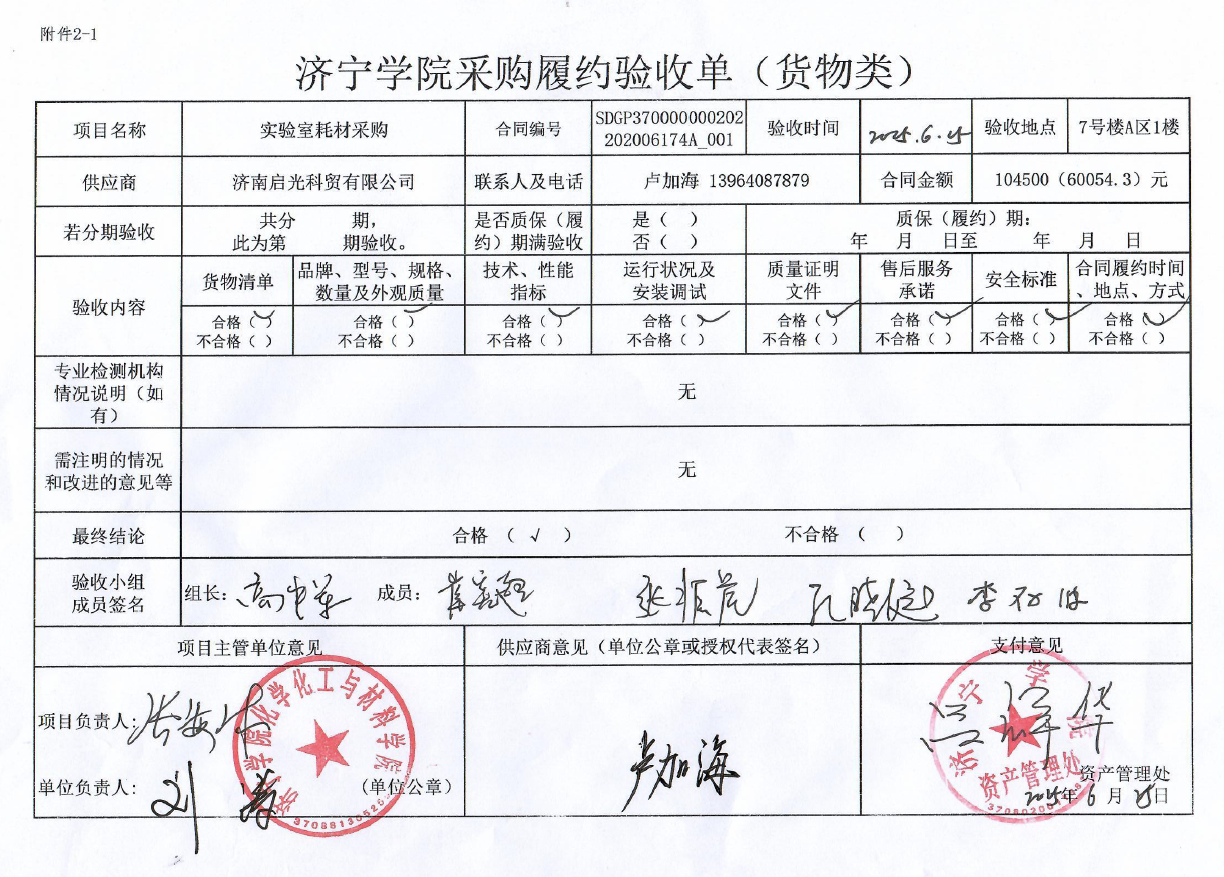 附件2-1
济宁学院采购履约验收单（货物类）
项目名称 实验室耗材采购 合同编号 SDGP370000000202202006174A_001 验收时间 2025.6.25 验收地点 7号楼A区1楼
供应商 济南启光科贸有限公司 联系人及电话 卢加海 13964087879 合同金额 104500（60054.3）元
若分期验收 共分 期，
此为第 期验收。
是否质保（履
约）期满验收
是（ ）
否（ ）
质保（履约）期：
年 月 日至 年 月 日
验收内容
货物清单
品牌、型号、规格、
数量及外观质量
技术、性能
指标
运行状况及
安装调试
质量证明
文件
售后服务
承诺
安全标准
合同履约时间
、地点、方式
合格（✓） 合格（✓） 合格（✓） 合格（✓） 合格（✓） 合格（✓） 合格（✓） 合格（✓）
不合格（ ） 不合格（ ） 不合格（ ） 不合格（ ） 不合格（ ） 不合格（ ） 不合格（ ） 不合格（ ）
专业检测机构
情况说明（如
有）
无
需注明的情况
和改进的意见等
无
最终结论 合格 （ √ ） 不合格 （ ）
验收小组
成员签名
组长： 成员：
项目主管单位意见 供应商意见（单位公章或授权代表签名） 支付意见
项目负责人：
单位负责人： （单位公章）
济宁学院化学化工与材料科学院
卢加海
济宁学院
资产管理处
资产管理处
2025年 6 月 25日